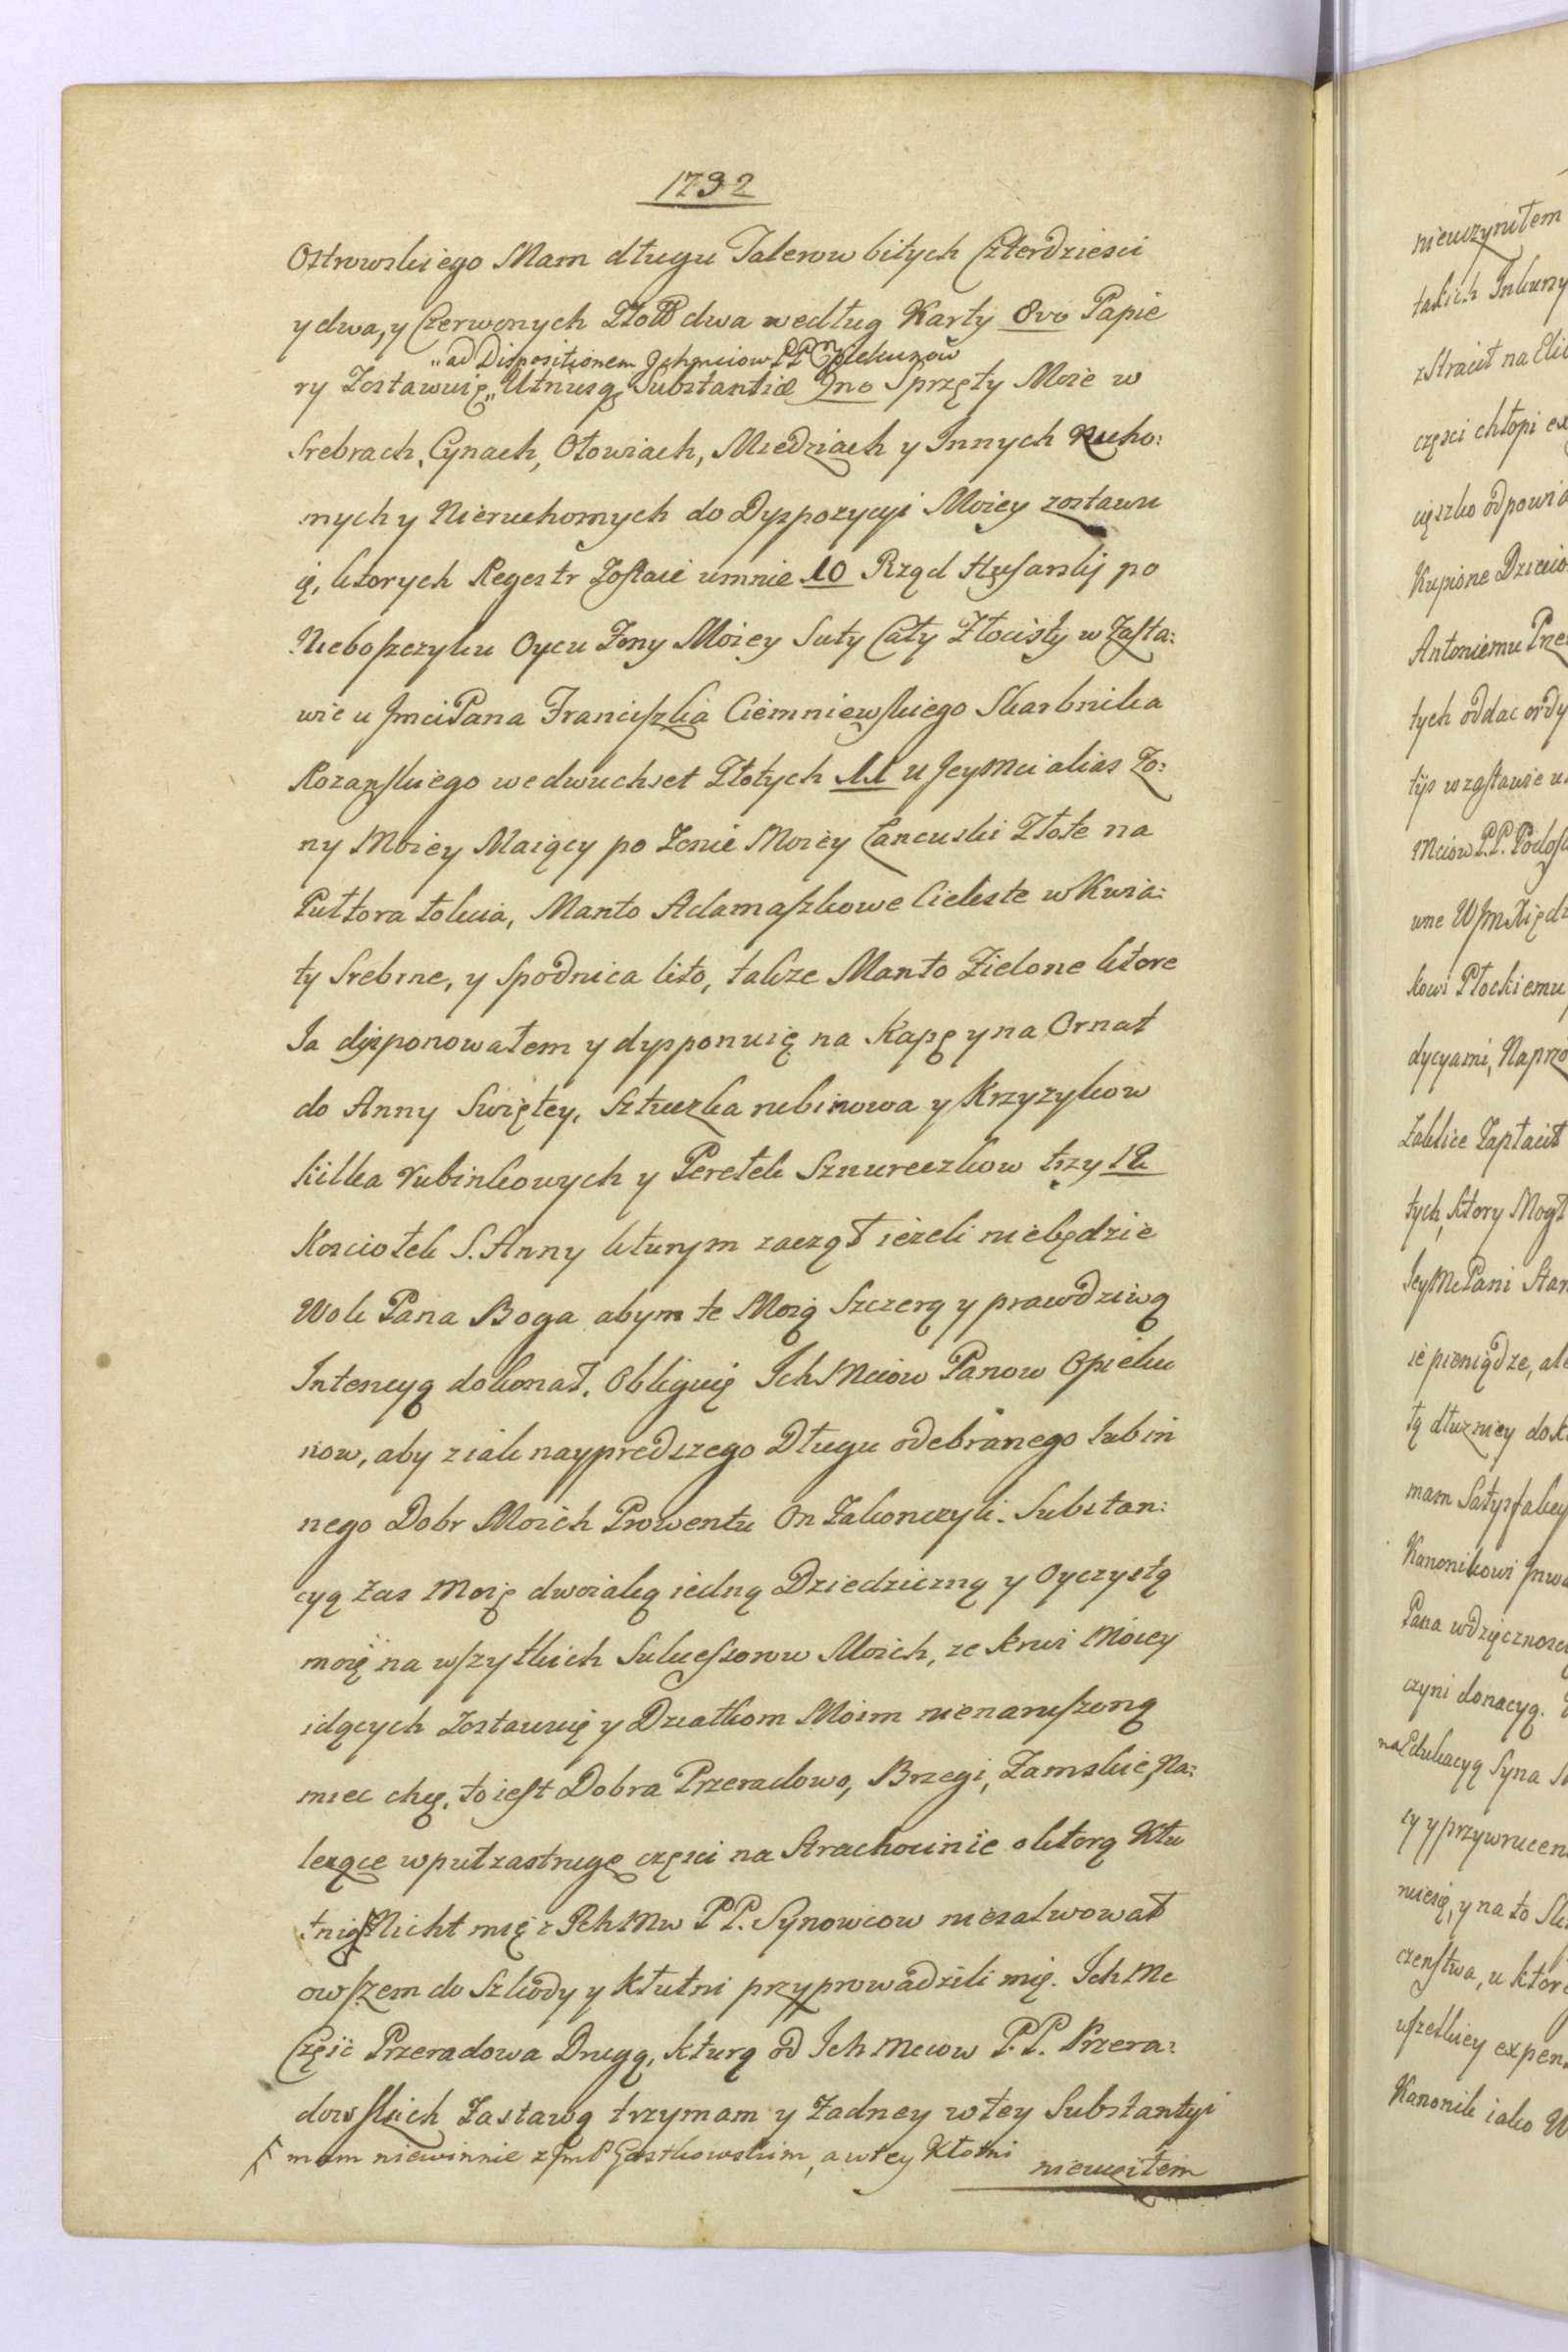 1732
Ostrowskiego Mam długu Talerow bitych Czterdziesci
y dwa, y Czerwonych Złott dwa według Karty 8vo Papie
„ad Dispositionem Ichmciow PP Opiekunow
ry Zostawuię „Utriusq Substantiæ 9no Sprzęty Moie w
Srebrach, Cynach, Ołowiach, Miedziach y Innych Rucho:
mych y Nieruchomych do Dyspozycyi Moiey zostawu
ię, ktorych Regestr Zostaie umnie 10 Rząd Husarskj po
Nieboszczyku Oycu Zony Moiey Suty Cały Złocisty w Zasta:
wie u Jmci Pana Franciszka Ciemniewskiego Skarbnika
Rozanskiego wedwuchset Złotych 11 u Jeymci alias Zo:
ny Moiey Maiący po Zonie Moiey Łancuski Złote na
Pułtora łokcia, Manto Adamaszkowe Cieliste w Kwia:
ty Srebrne, y Spodnica lito, takze Manto Zielone ktore
Ia dysponowałem y dysponuię na Kapę y na Ornat
do Anny Swiętey, Sztuczka rubinowa y Krzyzykow
kilka rubinkowych y Perełek Sznureczkow trzy 12
Kosciołek S. Anny kturym zaczął ieżeli niebędzie
Wola Pana Boga abym te Moią Szczerą y prawdziwą
Intencyą dokonał, Obliguię Ich Mciow Panow Opieku
now, aby z iak nayprędszego Długu odebranego lub in
nego Dobr Moich Prowentu On Zakonczyli. Substan:
cyą zas Moię dwoiaką iedną Dziedziczną y Oyczystą
moię na wszytkich Sukcessorow Moich, ze krwi Moiey
idących Zostawuię y Dziatkom Moim nienaruszoną
miec chcę, to iest Dobra Przeradowo, Brzegi, Zamskie, Na:
lezące w putzastrugę części na Strachocinie o ktorą Kłu
tnią Nicht mię z Ich Mw PP. Synowcow niesalwował
owszem do Szkody y Kłutni przyprowadzili mię. Ich Mc
Częśc Przeradowa Drugą, kturą od Ich Mciow P.P. Przera:
dowskich Zastawą trzymam y Zadney w tey Substantyi
mam niewinnie z Jm P Gostkowskim, a w tey Kłotni
nieuczyniłem
nieuczynitem
takich
zstracił na
częsci chłopi
cięszko odpowia
Kupione
Antoniemu
tych oddac
w zastawie
Mciow P.P.
kowi Płockiemu
dycyami, Napr
Zapłacił
tych, ktory Mogł
Jey Mc Pani
ie pieniądze,
tą dłuzniey
mam
Kanonikowi
Pana wdzięcznosc
czyni donacyą.
na Edukacyą Syna
cy y przywrucen
y na to
czenstwa, u ktor
wszelkiey expen
Kanonik iako